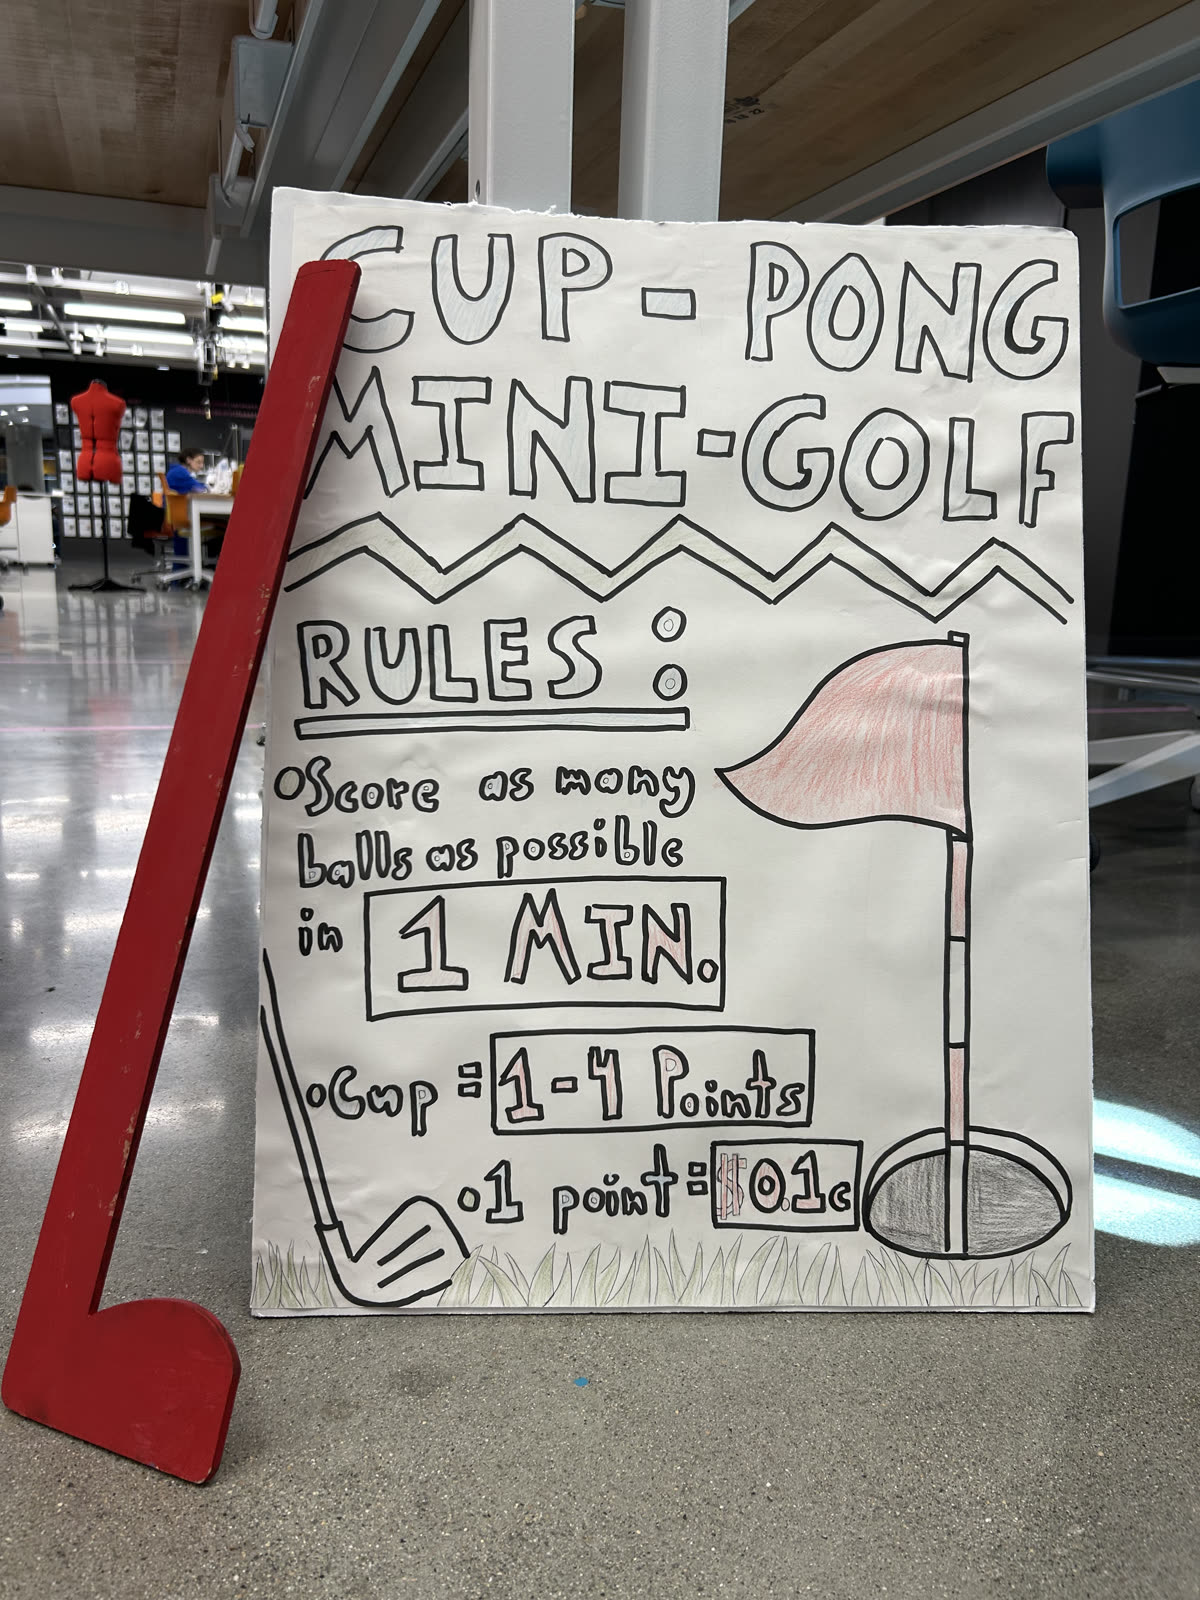 CUP-PONG
MINI-GOLF
RULES:
Score as many
balls as possible
in 1 MIN.
Cup = 1-4 Points
1 point = $0.1c